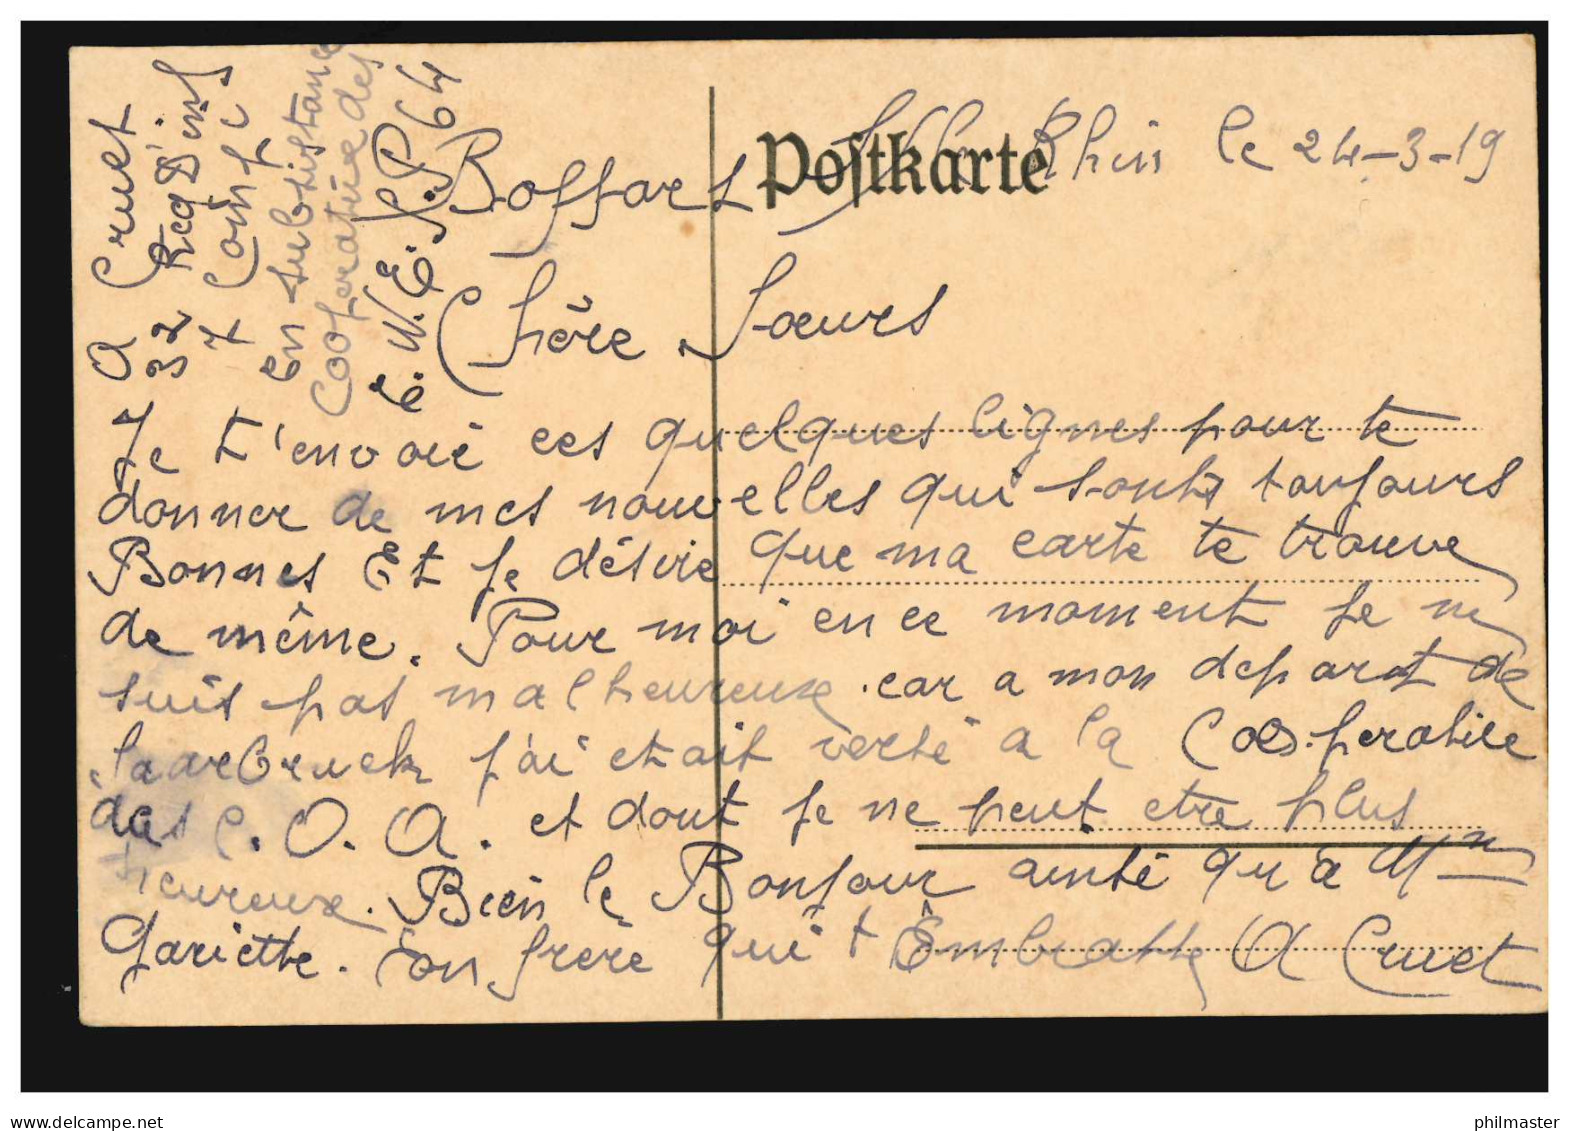 A Cruet
32 Reg D'inf
7 Comp
En subsistance
Cooperative des
S.P. 64
Postkarte
Rhin le 24-3-19
Boppard
Chère Soeurs
Je t'envoie ces quelques lignes pour te
donner de mes nouvelles qui sont toujours
Bonnes Et je désire que ma carte te trouve
de même. Pour moi en ce moment je ne
suis pas malheureuxe. car a mon depart de
Saarbruck j'ai etait versé a la Cooperative
des C.O.A. et dont je ne peut etre plus
heureuxe. Bien le Bonjour ainsi qu'a Mn
Gariette. Ton frère qui t'Embrasse A Cruet
delcampe.net
philmaster